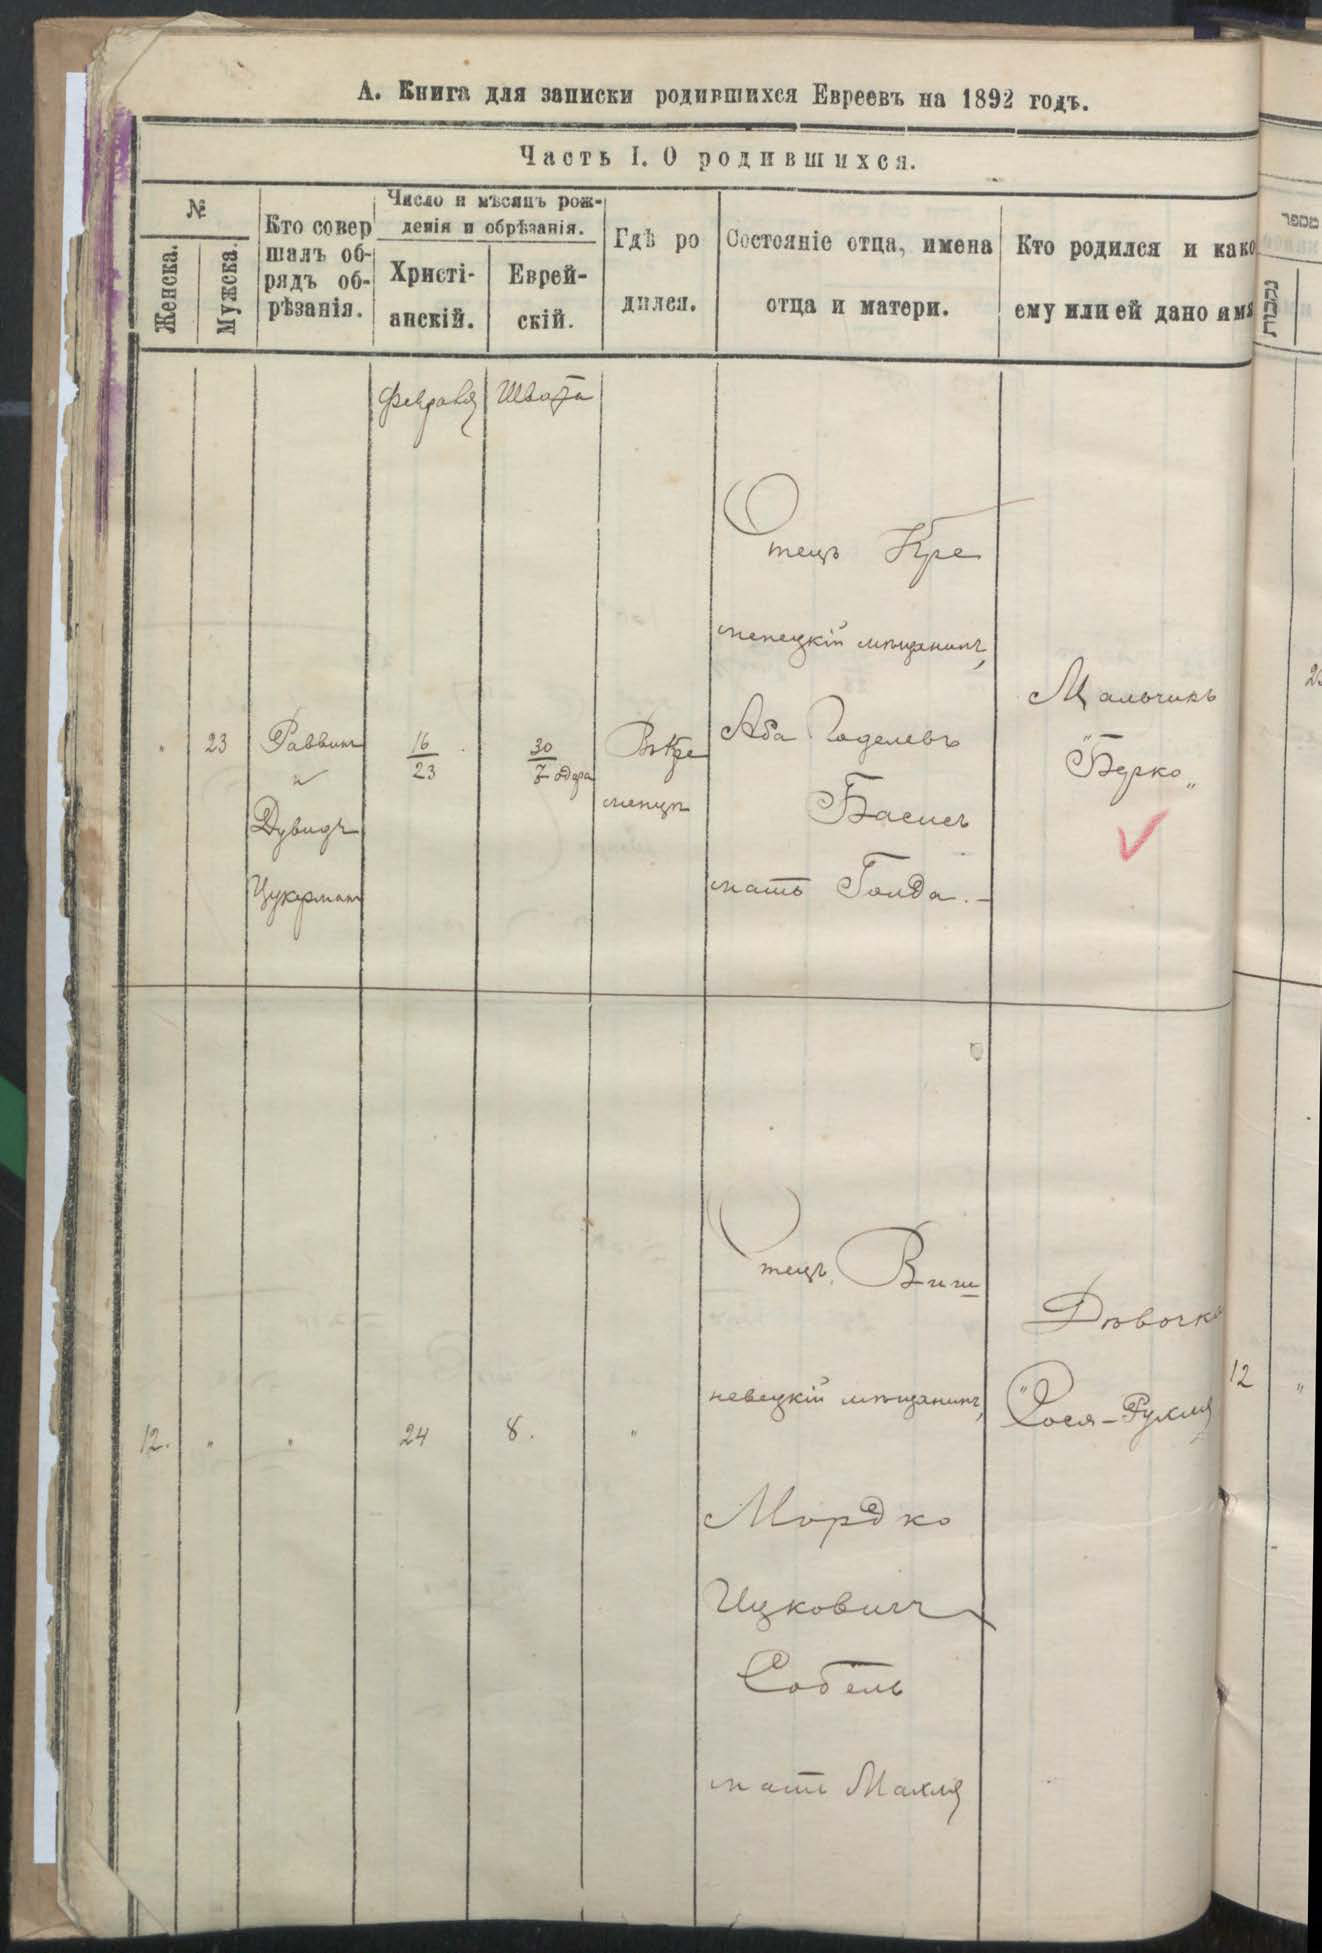 А. Книга для записки родившихся Евреевъ на 1892 годъ.
Часть I. О родившихся.
№
Женска.
Мужска.
Кто совер
шалъ об-
рядъ об-
рѣзанія.
Число и мѣсяцъ рож-
денія и обрѣзанія.
Христі-
анскій.
Еврей-
скій.
Гдѣ ро
дился.
Состояніе отца, имена
отца и матери.
Кто родился и како
ему или ей дано имя
מספר
נקבות
Февраля
Швата
23
Раввинъ
и
Дувидъ
Цукерман
16
23
30
7 адара
Въ Кре
менцѣ
Отецъ Кре
менецкій мѣщанинъ,
Аба Годелевъ
Басисъ
мать Голда. –
Мальчикъ
"Берко"
12.
"
"
24
8.
"
Отецъ Виш
невецкій мѣщанинъ,
Мордко
Ицковичъ
Собель
мать Махля
Дѣвочка
"Сося-Рухля
12
"